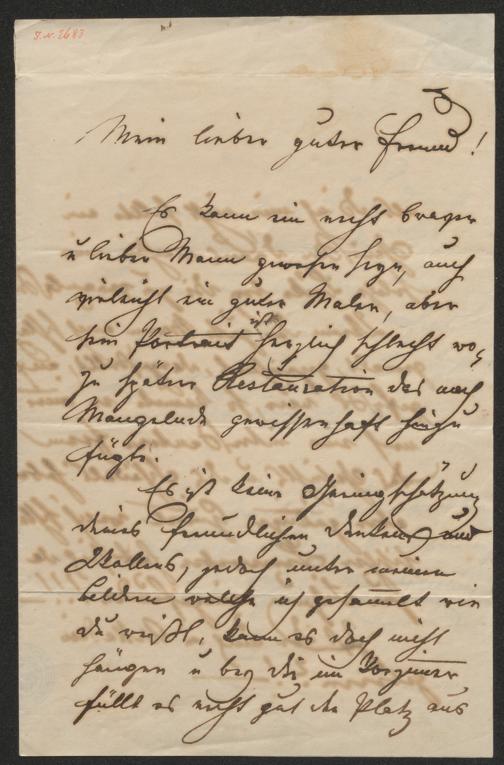 J.N. 3683
Mein lieber guter Freund!
Es kann ein recht braver
u lieber Mann gewesen seyn, auch
vieleicht ein guter Maler, aber
sein Portrait ist herzlich schlecht wo-
zu später Restauration das noch
Mangelnde gewissenhaft hinzu
fügte.
Es ist keine Geringschätzung
deines freundlichen Denkens und
Wollens, jedoch unter meinen
Bildern welche ich gesammelt wie
du weißt, kann es doch nicht
hängen u bey dir im Vorzimmer
füllt es recht gut den Platz aus